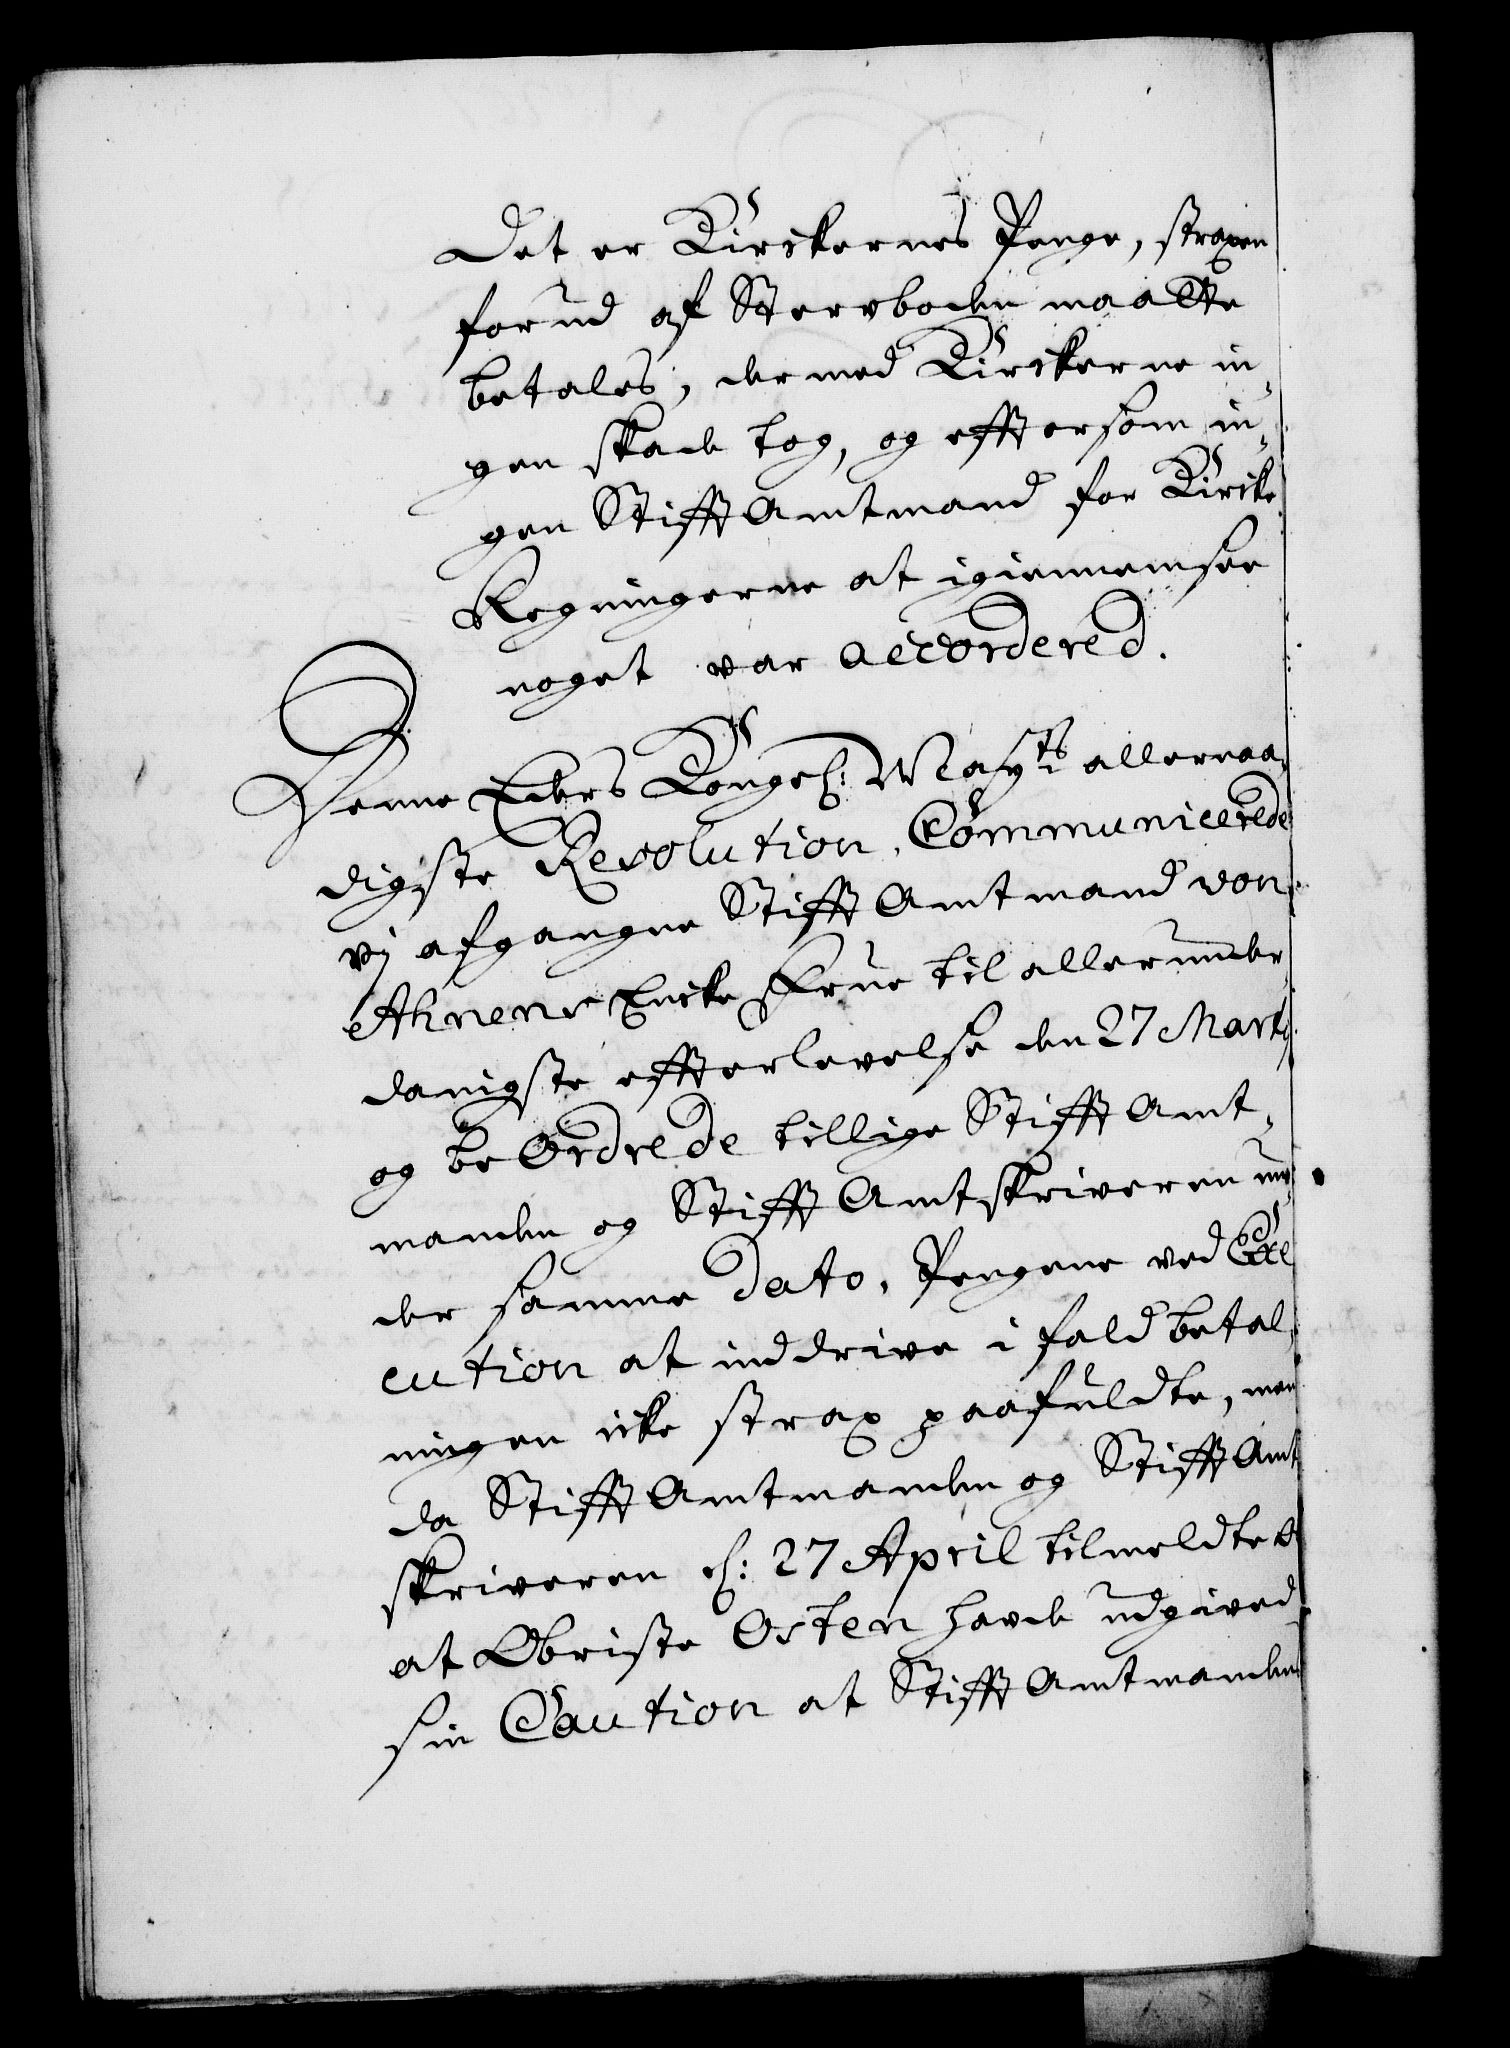 Det er Kirckernes Penge, straxen
forud af Stervboden maatte
betales, der med Kirckerne in¬
gen skade tog, og effter som in¬
gen Stifft Amtmand for Kircke
Regningerne at igiennemsee
noget var accordered.
Denne Eders Kongel: Mayts allernaa¬
digste Resolution, Communicerede
vj afgangne Stifft Amtmand von
Ahnens Encke Frue til allerunder¬
danigste effterlevelse den 27 Martij
og be Ordrede tillige Stifft Amt¬
manden og Stifft Amtskriveren un¬
der samme dato, Pengene ved Exe
cution at inddrive i fald betal¬
ningen icke strax paafuldte, men
da Stifft Amtmanden og Stifft Amt
skriveren d: 27 April tilmeldte os
at Obriste Osten hafde udgived
sin Caution at Stifft Amtmanden